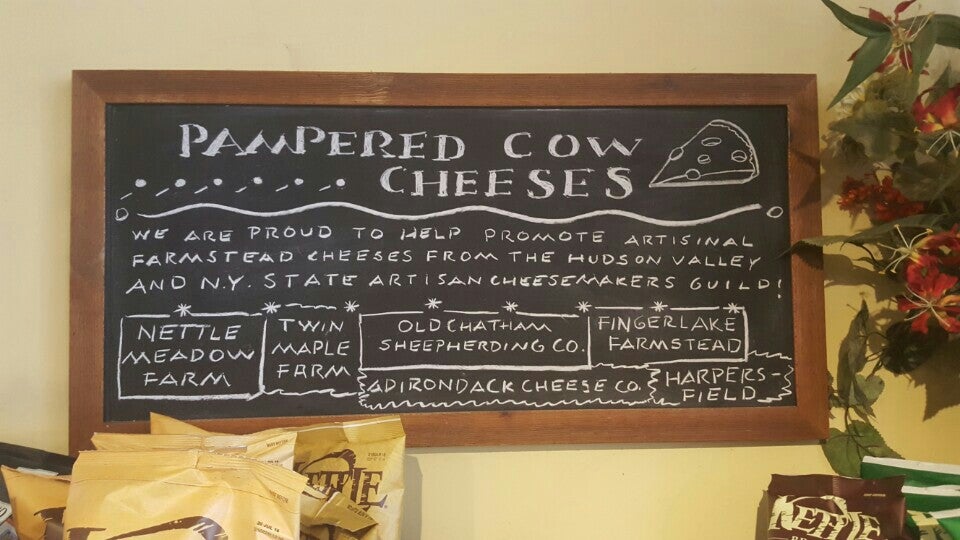 PAMPERED COW
CHEESES
WE ARE PROUD TO HELP PROMOTE ARTISINAL
FARMSTEAD CHEESES FROM THE HUDSON VALLEY
AND N.Y. STATE ARTISAN CHEESEMAKERS GUILD!
NETTLE
MEADOW
FARM
TWIN
MAPLE
FARM
OLD CHATHAM
SHEEPHERDING CO.
FINGERLAKE
FARMSTEAD
ADIRONDACK CHEESE CO.
HARPERS-
FIELD
KETTLE